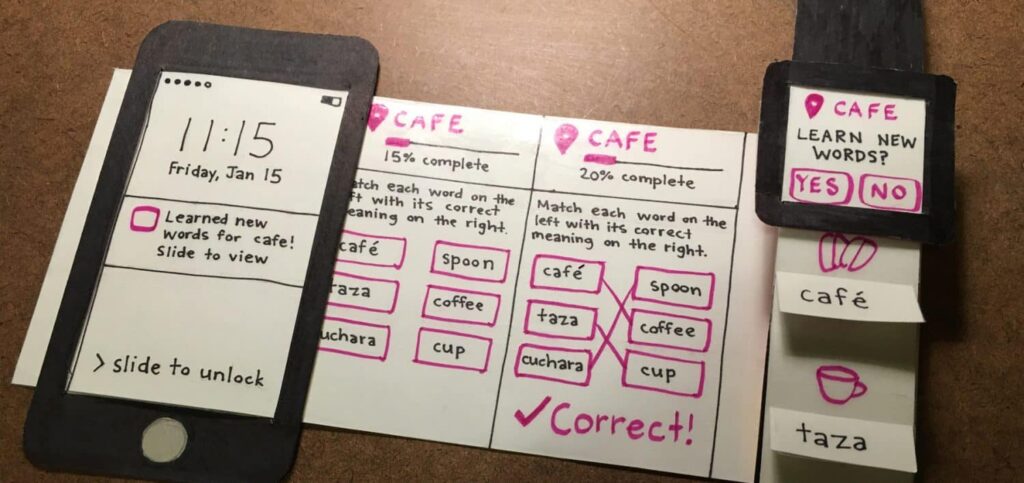 11:15
Friday, Jan 15
Learned new
words for cafe!
Slide to view
> slide to unlock
CAFE
15% complete
each word on the
with its correct
meaning on the right.
café
spoon
taza
coffee
cuchara
cup
CAFE
20% complete
Match each word on the
left with its correct
meaning on the right.
café
spoon
taza
coffee
cuchara
cup
✓Correct!
CAFE
LEARN NEW
WORDS?
YES NO
café
taza